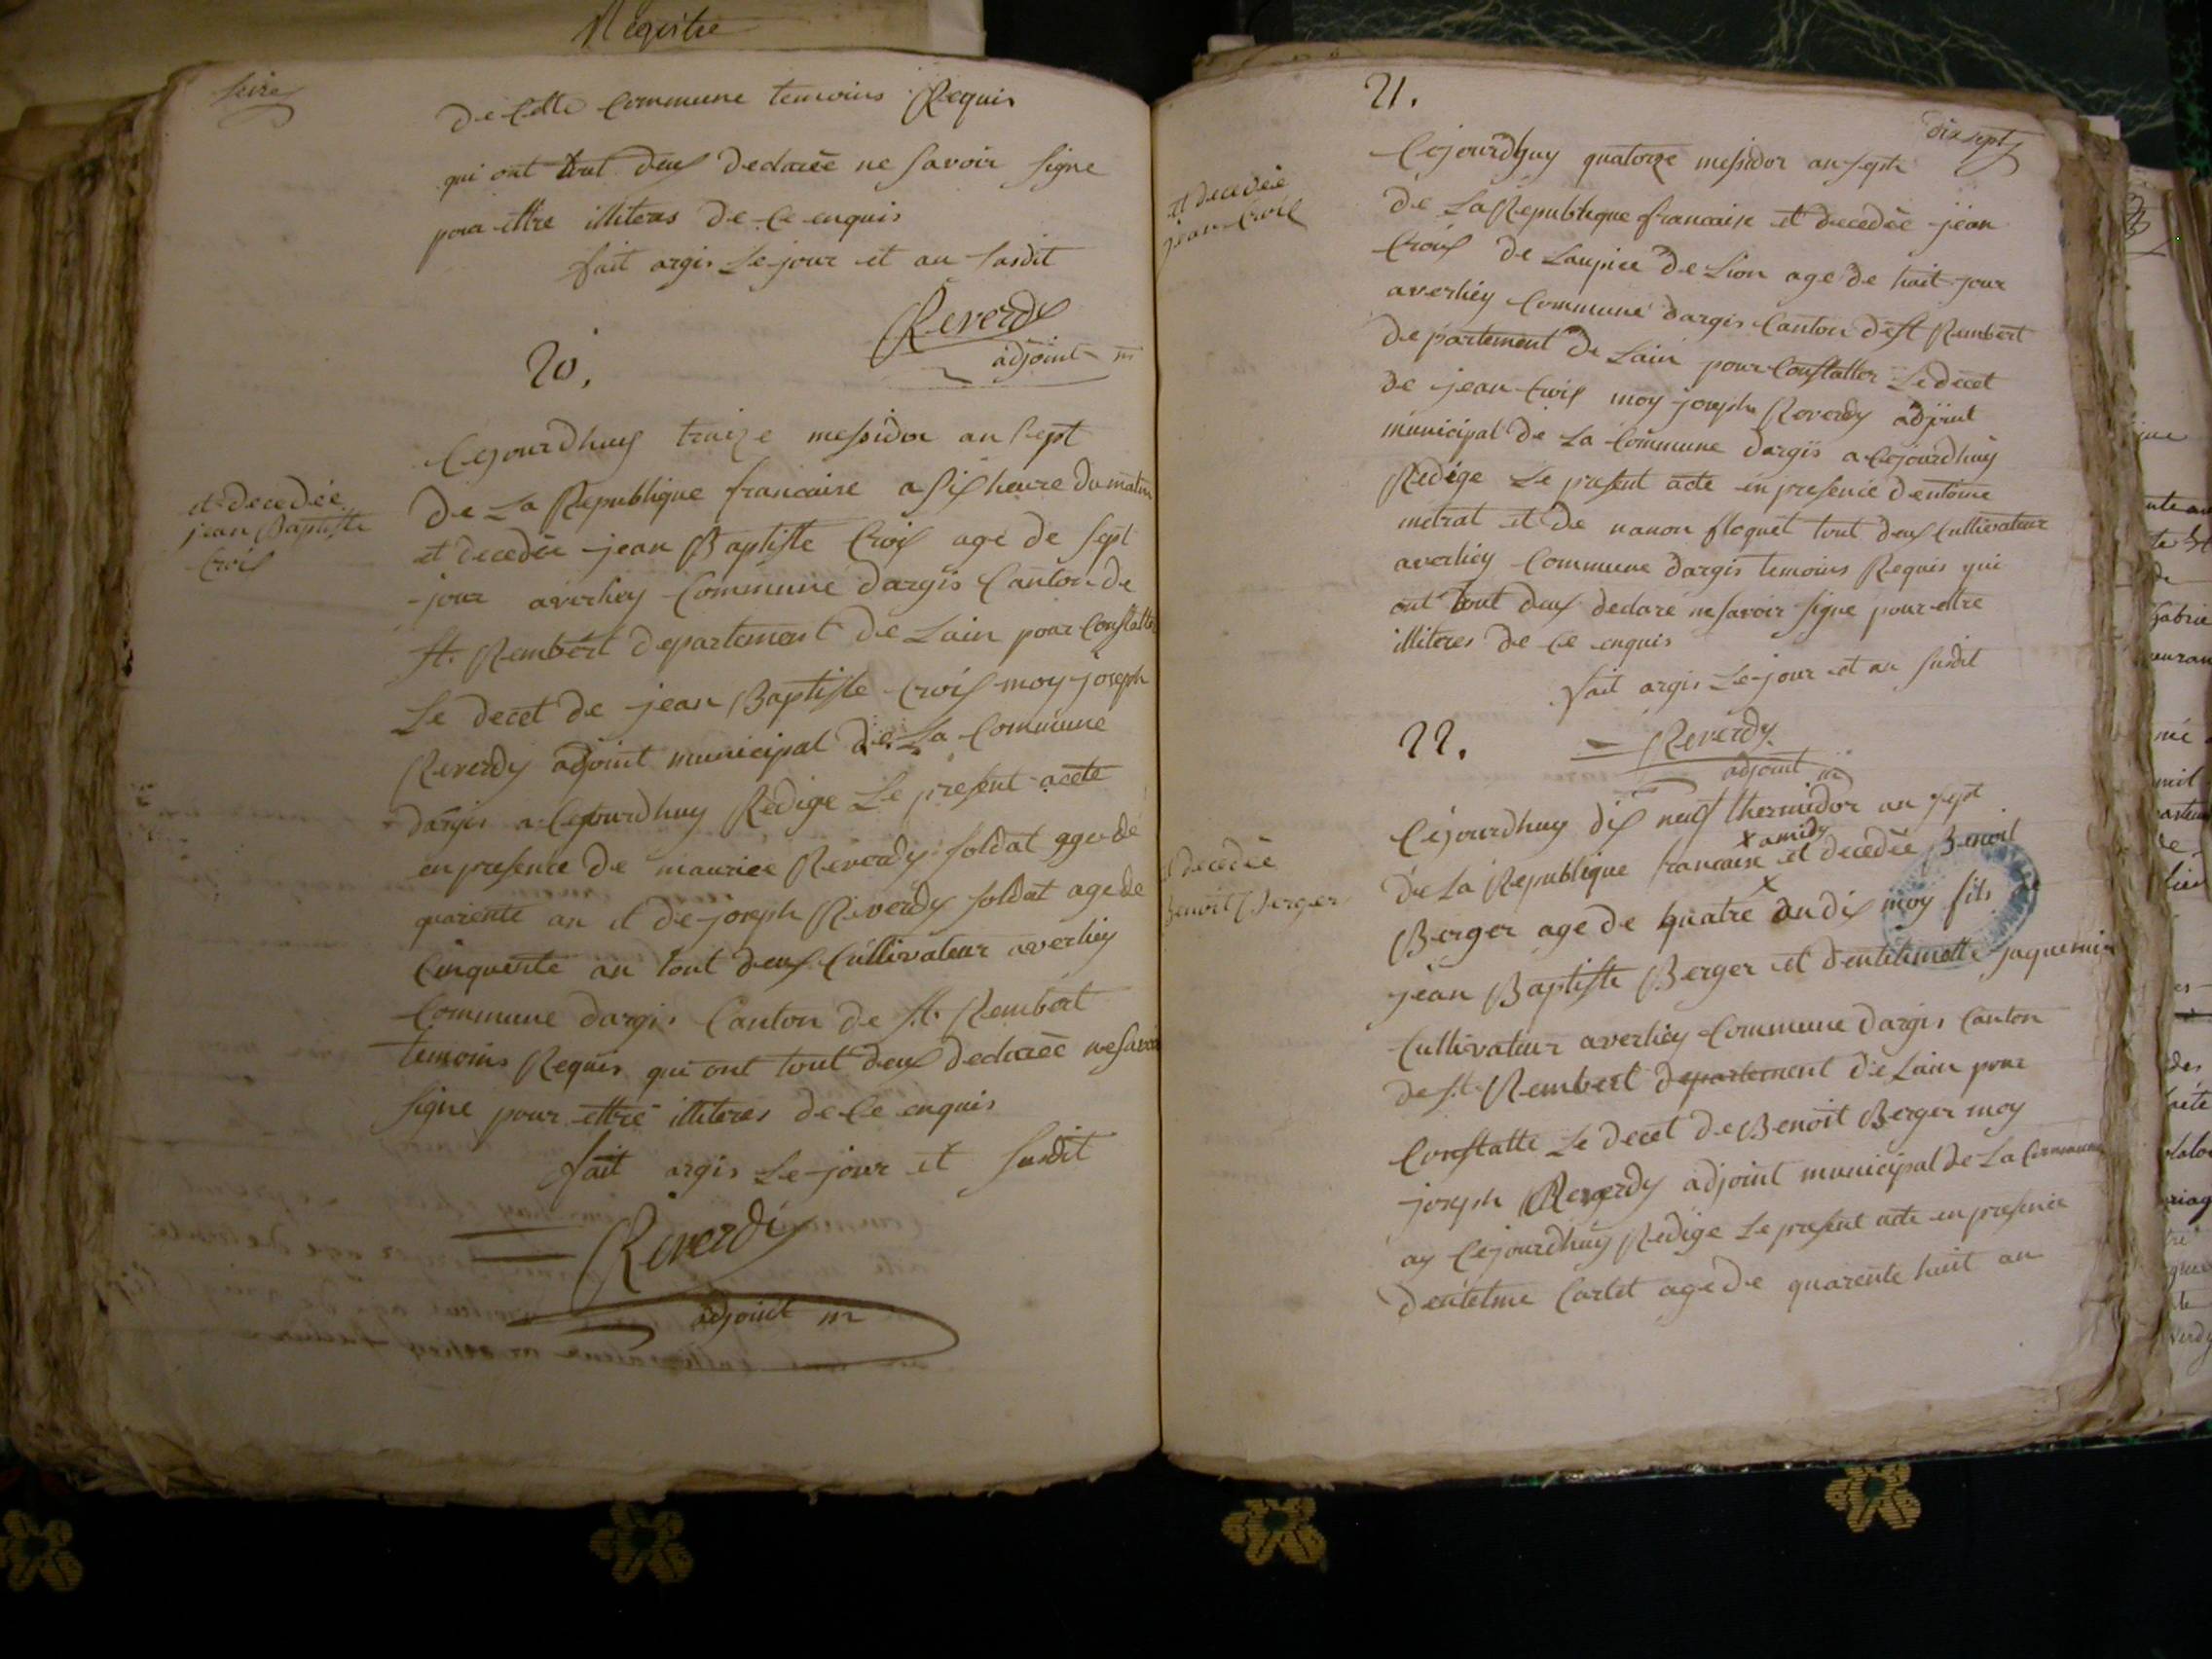 Registre
seize
de Cette Commune temoins Requis
qui ont tout deux declareé ne savoir signe
pour ettre illiteres de Ce enquis
fait argis Le jour et an susdit
Reverdy
adjoint m
20.
et decedée
jean Baptiste
Croix
Cejourdhuy traize messidor an sept
De La Republique francaise a six heure du matin
et decedée jean Baptiste Croix age de sept
jour averhey Commune dargis Canton de
St. Rembert departement de Lain pour Constatter
Le decet de jean Baptiste Croix moy joseph
Reverdy adjoint municipal de La Commune
dargis a Cejourdhuy Redige Le present acete
en presence de maurice Reverdy soldat age de
quarente an et de joseph Reverdy soldat age de
Cinquente an tout deux Cultivateur averhey
Commune dargis Canton de St. Rembert
temoins Requis qui ont tout deux declareé ne savoir
signe pour ettre illiteres de Ce enquis
fait argis Le jour et susdit
Reverdy
adjoint m
21.
dix sept
et decedée
jean Croix
Cejourdhuy quatorze messidor an sept
de La Republique francaise et decedée jean
Croix de Laupice de Lion age de huit jour
averhey Commune dargis Canton de St Rembert
departement de Lain pour Constatter Le decet
de jean Croix moy joseph Reverdy adjoint
municipal de La Commune dargis a Cejourdhuy
Redige Le present acte en presence dentoine
metrat et de nanon floquet tout deux Cultivateur
averhey Commune dargis temoins Requis qui
ont tout deux declare ne savoir signe pour ettre
illiteres de Ce enquis
fait argis Le jour et an susdit
Reverdy
adjoint m
22.
et decedée
Benoit Berger
Cejourdhuy dix neuf thermidor an sept
x amidy
de La Republique francaise x et decedée Benoit
Berger age de quatre an dix moy fils de
jean Baptiste Berger et dentelmette jaquemin
Cultivateur averhey Commune dargis Canton
de St. Rembert departement de Lain pour
Constatte Le decet de Benoit Berger moy
joseph Reverdy adjoint municipal de La Commune
ay Cejourdhuy Redige Le present acte en presence
dentelme Cartet age de quarente huit an